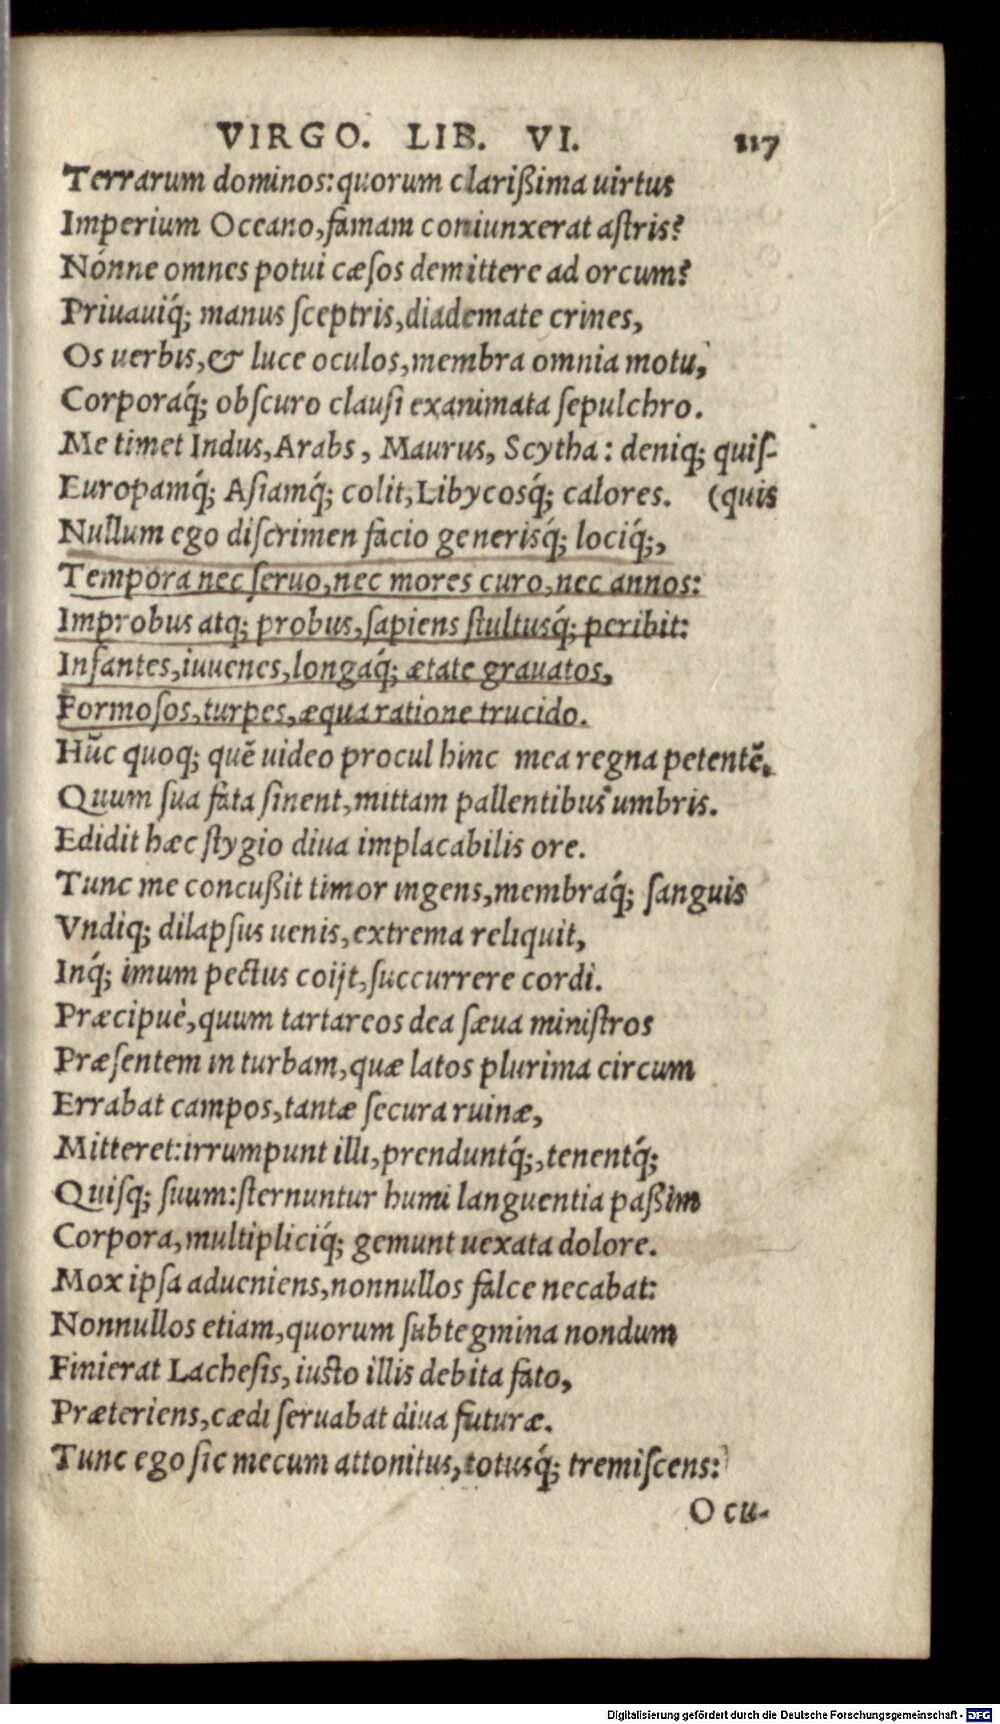 VIRGO. LIB. VI. 117
Terrarum dominos: quorum clarißima uirtus
Imperium Oceano, famam coniunxerat aſtris?
Nónne omnes potui cæſos demittere ad orcum?
Priuauiq́; manus ſceptris, diademate crines,
Os uerbis, & luce oculos, membra omnia motu,
Corporaq́; obſcuro clauſi exanimata ſepulchro.
Me timet Indus, Arabs, Maurus, Scytha: deniq; quiſ-
Europamq́; Aſiamq́; colit, Libycosq́; calores. (quis
Nullum ego diſcrimen facio generisq́; lociq́;,
Tempora nec ſeruo, nec mores curo, nec annos:
Improbus atq; probus, ſapiens ſtultusq́; peribit:
Infantes, iuuenes, longaq́; ætate grauatos,
Formoſos, turpes, æqua ratione trucido.
Hūc quoq; quē uideo procul hinc mea regna petentē,
Quum ſua fata ſinent, mittam pallentibus umbris.
Edidit hæc ſtygio diua implacabilis ore.
Tunc me concußit timor ingens, membraq́; ſanguis
Vndiq; dilapſus uenis, extrema reliquit,
Inq́; imum pectus coijt, ſuccurrere cordi.
Præcipuè, quum tartareos dea ſæua miniſtros
Præſentem in turbam, quæ latos plurima circum
Errabat campos, tantæ ſecura ruinæ,
Mitteret: irrumpunt illi, prenduntq́;, tenentq́;
Quiſq; ſuum: ſternuntur humi languentia paßim
Corpora, multipliciq́; gemunt uexata dolore.
Mox ipſa adueniens, nonnullos falce necabat:
Nonnullos etiam, quorum ſubtegmina nondum
Finierat Lacheſis, iuſto illis debita fato,
Præteriens, cædi ſeruabat diua futuræ.
Tunc ego ſic mecum attonitus, totusq́; tremiſcens:
O cu-
Digitalisierung gefördert durch die Deutsche Forschungsgemeinschaft - DFG